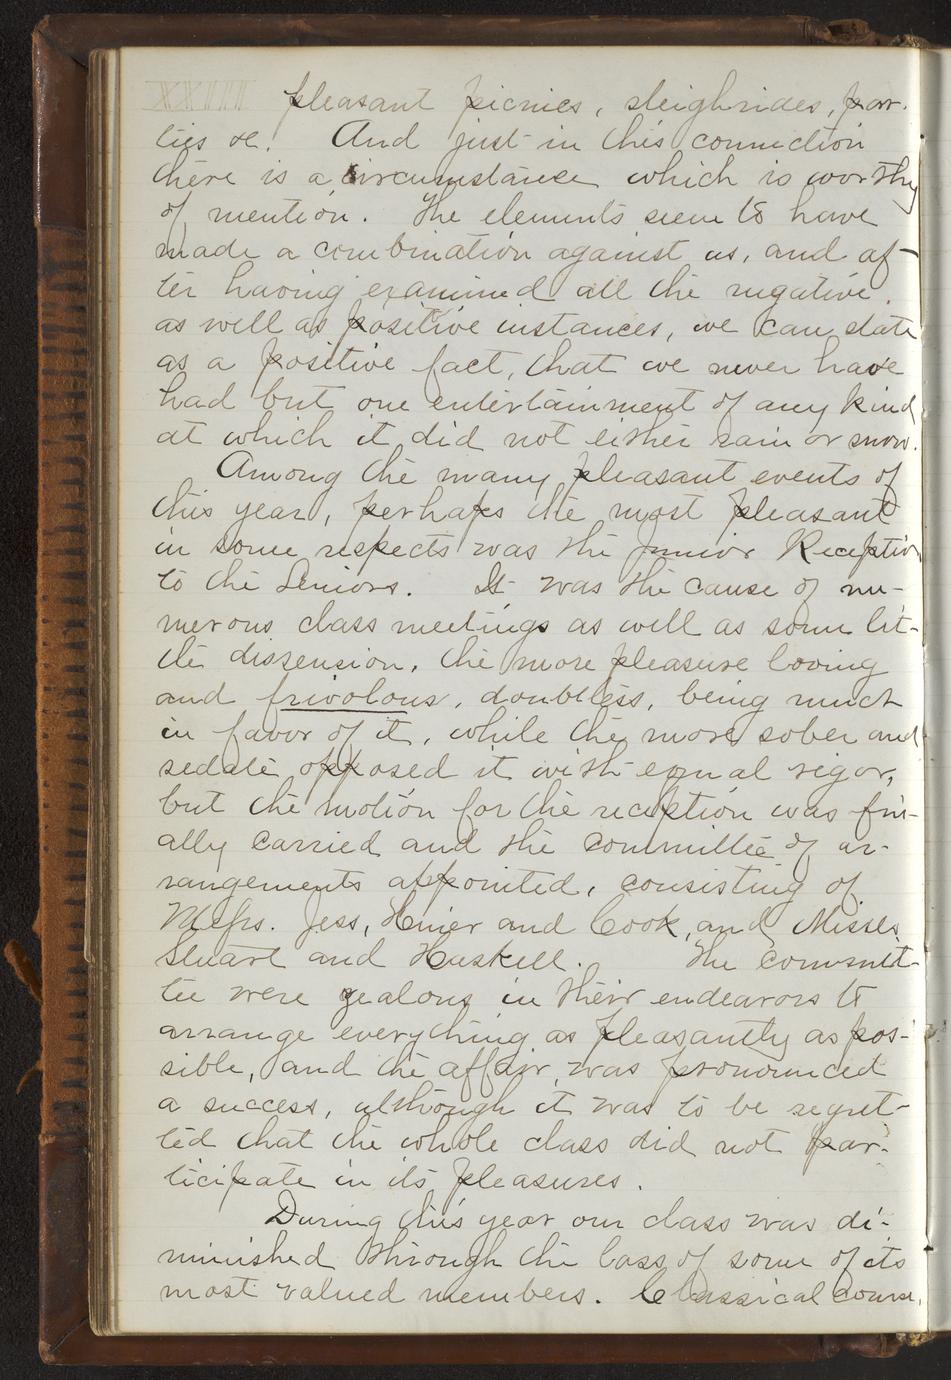 XXIIII pleasant picnics, sleighrides, par-
ties &c. And just in this connection
there is a circumstance which is worthy
of mention. The elements seem to have
made a combination against us, and af-
ter having examined all the negative,
as well as positive instances, we can state
as a positive fact, that we never have
had but one entertainment of any kind
at which it did not either rain or snow.
Among the many pleasant events of
this year, perhaps the most pleasant
in some respects was the Junior Reception
to the Seniors. It was the cause of nu-
merous class meetings as well as some lit-
tle dissension, the more pleasure loving
and frivolous, doubtless, being much
in favor of it, while the more sober and
sedate opposed it with equal vigor,
but the motion for the reception was fin-
ally carried and the committee of ar-
rangements appointed, consisting of
Messrs. Jess, Hiner and Cook, and Misses
Stuart and Haskell. The commit-
tee were zealous in their endeavors to
arrange everything as pleasantly as pos-
sible, and the affair was pronounced
a success, although it was to be regret-
ted that the whole class did not par-
ticipate in its pleasures.
During this year our class was di-
minished through the loss of some of its
most valued members. Classical course,